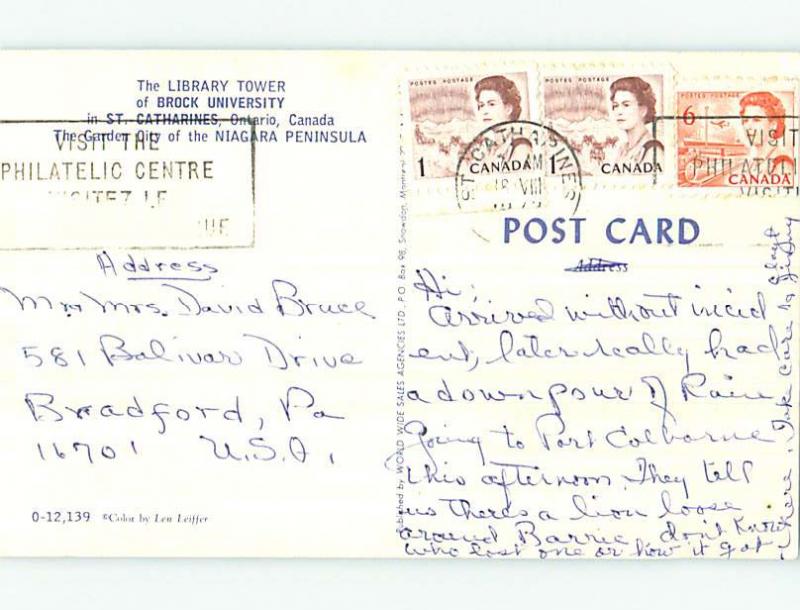 The LIBRARY TOWER
of BROCK UNIVERSITY
in ST. CATHARINES, Ontario, Canada
The Garden City of the NIAGARA PENINSULA
VISIT THE
PHILATELIC CENTRE
VISITEZ LE
UE
POSTES POSTAGE
1
CANADA
POSTES POSTAGE
1
CANADA
POSTES POSTAGE
6
CANADA
ST. CATHARINES
AM
18 VIII
VISIT
PHILATEL
VISIT
POST CARD
Address
Address
Mr Mrs. David Bruce
581 Bolivar Drive
Bradford, Pa
16701 U.S.A.
0-12,139 ©Color by Len Leiffer
Published by WORLD WIDE SALES AGENCIES LTD., P.O. Box 98, Snowdon, Montreal
Hi;
Arrived without incid
ent, later really had
a downpour of Rain
Going to Port Colborne
this afternoon. They tell
us there's a lion loose
around Barrie, don't know
who lost one or how it got
there. Take care